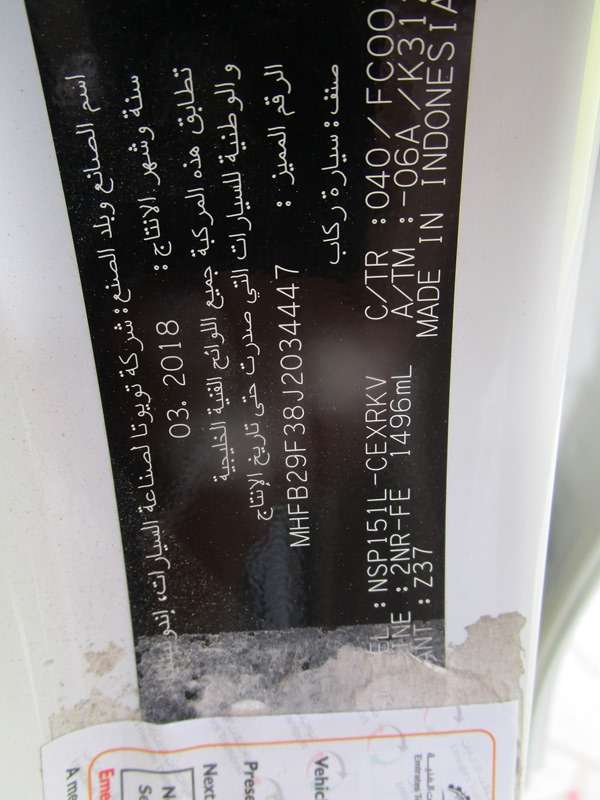 اسم الصانع وبلد الصنع: شركة تويوتا لصناعة السيارات،
سنة وشهر الانتاج: 03. 2018
تطابق هذه المركبة جميع اللوائح الفنية الخليجية
والوطنية للسيارات التي صدرت حتى تاريخ الإنتاج
الرقم المميز : MHFB29F38J2034447
صنف: سيارة ركاب
: NSP151L-CEXRKV C/TR : 040 / FC00
: 2NR-FE 1496mL A/TM : -06A / K31
: Z37 MADE IN INDONESIA
Emirates
Vehic
Prese
Next
N
Se
Eme
A me